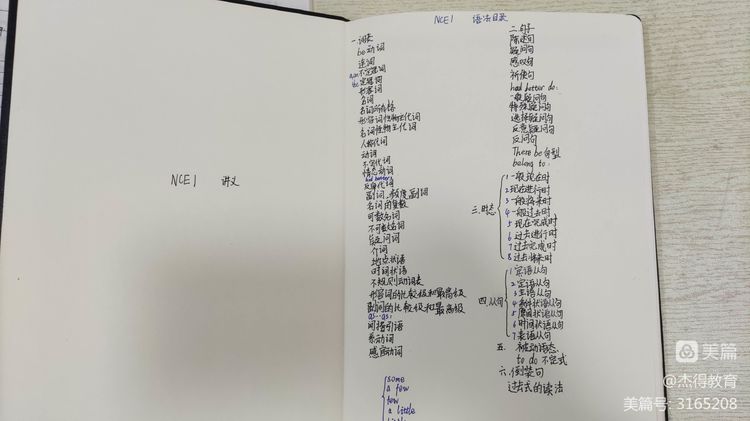 NCE1 讲义
NCE1 语法目录
一.词类
be动词
连词
a,an 不定冠词
the 定冠词
形容词
名词
名词所有格
形容词性物主代词
名词性物主代词
人称代词
动词
不定代词
情态动词
had better
反身代词
副词.程度副词
名词的复数
可数名词
不可数名词
疑问词
介词
地点状语
时间状语
不规则动词表
形容词的比较级和最高级
副词的比较级和最高级
as...as.
间接引语
系动词
感官动词
some
a few
few
a little
二.句子
陈述句
疑问句
感叹句
祈使句
had better do.
一般疑问句
特殊疑问句
选择疑问句
反意疑问句
反问句
There be 句型
belong to.
三.时态
1 一般现在时
2 现在进行时
3 一般将来时
4 一般过去时
5 现在完成时
6 过去进行时
7 过去完成时
8 过去将来时
四.从句
1 宾语从句
2 定语从句
3 主语从句
4 条件状语从句
5 原因状语从句
6 时间状语从句
7 表语从句
五. 被动语态.
to do 不定式
六.倒装句
过去式的读法
美篇
@杰得教育
美篇号: 3165208